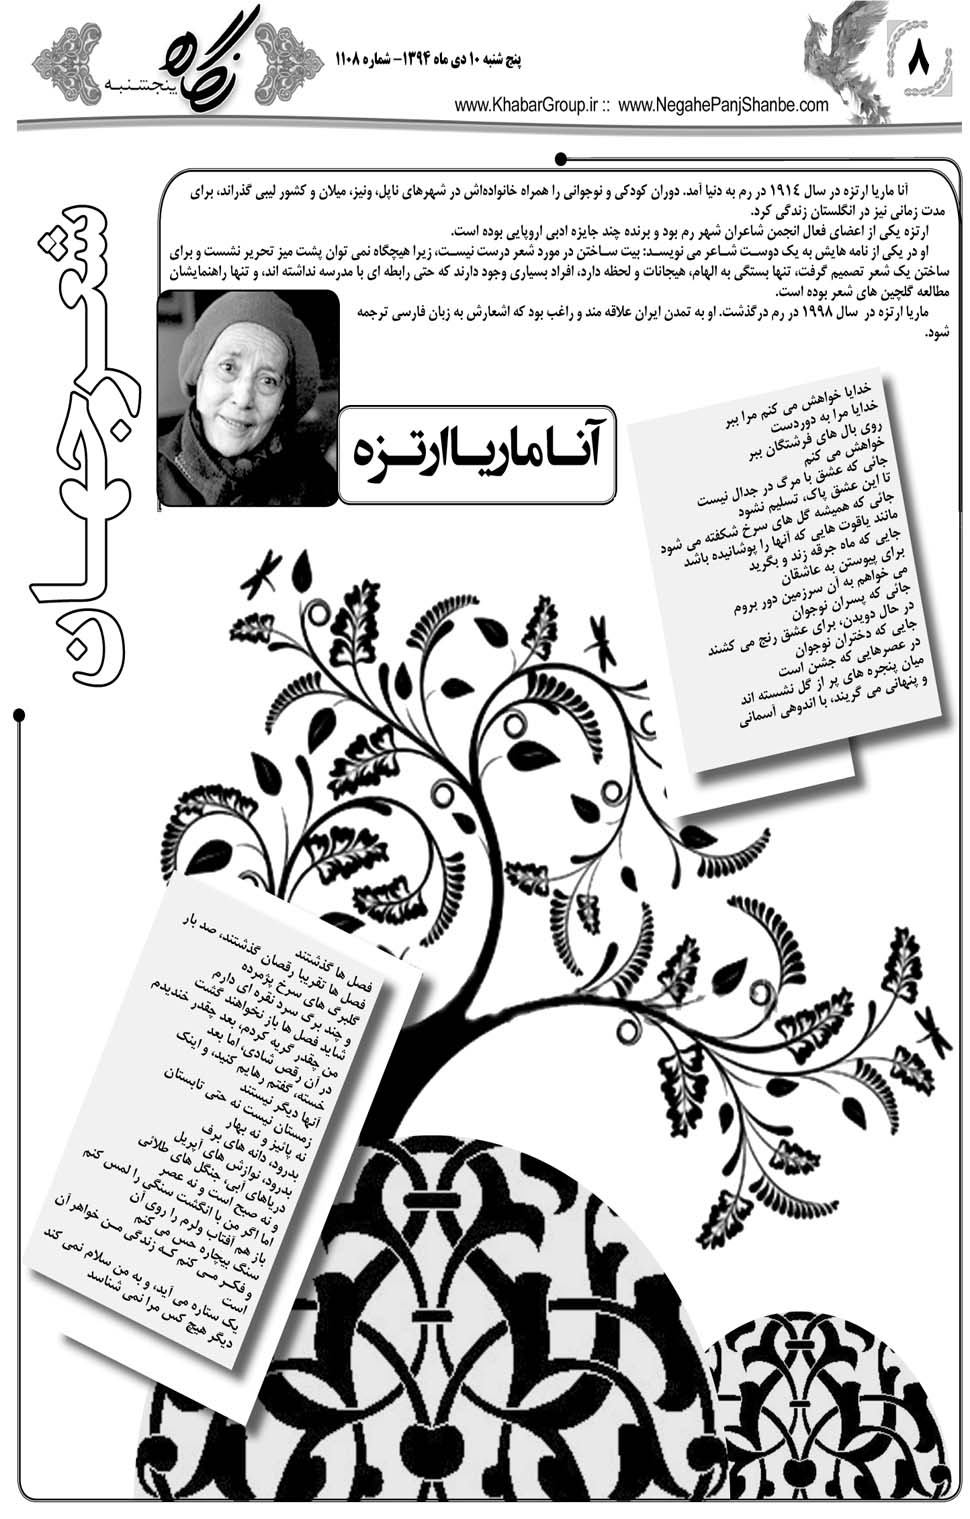 ۸
پنج شنبه ۱۰ دی ماه ۱۳۹۴- شماره ۱۱۰۸
نگاه
پنجشنبه
www.KhabarGroup.ir :: www.NegahePanjShanbe.com
شعر جهان
آنا ماریا ارتزه در سال ۱۹۱۴ در رم به دنیا آمد. دوران کودکی و نوجوانی را همراه خانواده‌اش در شهرهای ناپل، ونیز، میلان و کشور لیبی گذراند، برای
مدت زمانی نیز در انگلستان زندگی کرد.
ارتزه یکی از اعضای فعال انجمن شاعران شهر رم بود و برنده چند جایزه ادبی اروپایی بوده است.
او در یکی از نامه هایش به یک دوست شاعر می نویسد: بیت ساختن در مورد شعر درست نیست، زیرا هیچگاه نمی توان پشت میز تحریر نشست و برای
ساختن یک شعر تصمیم گرفت، تنها بستگی به الهام، هیجانات و لحظه دارد، افراد بسیاری وجود دارند که حتی رابطه ای با مدرسه نداشته اند، و تنها راهنمایشان
مطالعه گلچین های شعر بوده است.
ماریا ارتزه در سال ۱۹۹۸ در رم درگذشت. او به تمدن ایران علاقه مند و راغب بود که اشعارش به زبان فارسی ترجمه
شود.
آنا ماریا ارتزه
خدایا خواهش می کنم مرا ببر
خدایا مرا به دوردست
روی بال های فرشتگان ببر
خواهش می کنم
جائی که عشق با مرگ در جدال نیست
تا این عشق پاک، تسلیم نشود
جائی که همیشه گل های سرخ شکفته می شود
مانند یاقوت هایی که آنها را پوشانیده باشد
جایی که ماه جرقه زند و بگرید
برای پیوستن به عاشقان
می خواهم به آن سرزمین دور بروم
جائی که پسران نوجوان
در حال دویدن، برای عشق رنج می کشند
جایی که دختران نوجوان
در عصرهایی که جشن است
میان پنجره های پر از گل نشسته اند
و پنهانی می گریند، با اندوهی آسمانی
فصل ها گذشتند
فصل ها تقریبا رقصان گذشتند، صد بار
گلبرگ های سرخ پژمرده
و چند برگ سرد نقره ای دارم
شاید فصل ها باز نخواهند گشت
من چقدر گریه کردم، بعد چقدر خندیدم
در آن رقص شادی، اما بعد
خسته، گفتم رهایم کنید، و اینک
آنها دیگر نیستند
زمستان نیست نه حتی تابستان
نه پائیز و نه بهار
بدرود، دانه های برف
بدرود، نوازش های آپریل
دریاهای آبی، جنگل های طلائی
و نه صبح است و نه عصر
اما اگر من با انگشت سنگی را لمس کنم
باز هم آفتاب ولرم را روی آن
سنگ بیچاره حس می کنم
و فکر می کنم که زندگی من خواهر آن
است
یک ستاره می آید، و به من سلام نمی کند
دیگر هیچ کس مرا نمی شناسد